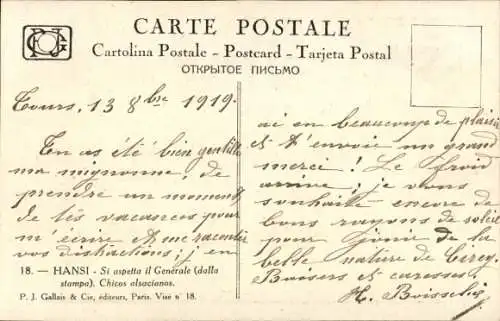 CARTE POSTALE
Cartolina Postale - Postcard - Tarjeta Postal
ОТКРЫТОЕ ПИСЬМО
Tours, 13 8bre 1919.
Tu as été bien gentille
ma mignonne, de
prendre un moment
de tes vacances pour
m'écrire et me raconter
vos distractions ; j'en
18. — HANSI - Si aspetta il Générale (dalla
stampa). Chicos alsacianos.
P. J. Gallais & Cie, éditeurs, Paris. Visé n° 18.
ai eu beaucoup de plaisir
et t'envoie un grand
merci ! Le froid
arrive ; je vous
souhaite encore de
bons rayons de soleil
pour jouir de la
belle nature de Cirey.
Baisers et caresses,
H. Boisselier